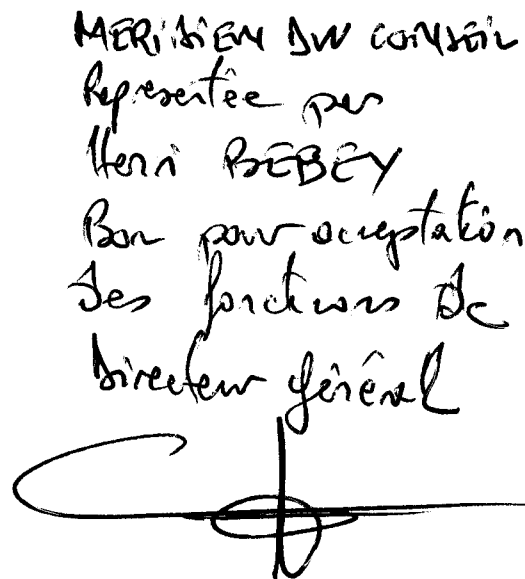 MERIDIEN DU CONSEIL
Représentée par
Henri BEBEY
Bon pour acceptation
des fonctions de
Directeur général